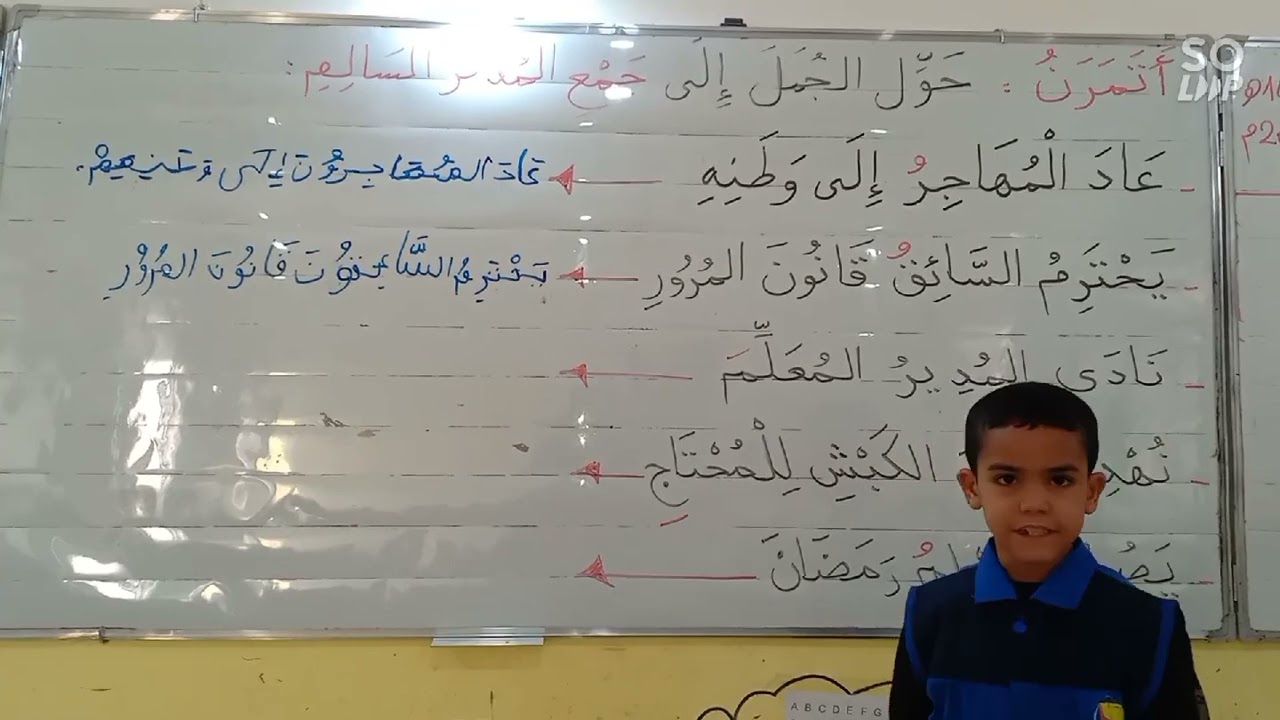 أَتَمَرَنُ : حَوِّل الجُمَلَ إِلَى جَمْعِ المُذَكر السَالِمِ :
- عَادَ الْمُهَاجِرُ إِلَى وَطَنِهِ عَادَ المُهَاجِرُونَ إِلَى وَطَنِهِمْ.
- يَحْتَرِمُ السَّائِقُ قَانُونَ المُرُورِ يَحْتَرِمُ السَّائِقُونَ قَانُونَ المُرُورِ
- نَادَى المُدِيرُ المُعَلِّمَ
- الكَبْشِ لِلْمُحْتَاجِ
- رَمَضَانَ
SO
LMP
A B C D E F G